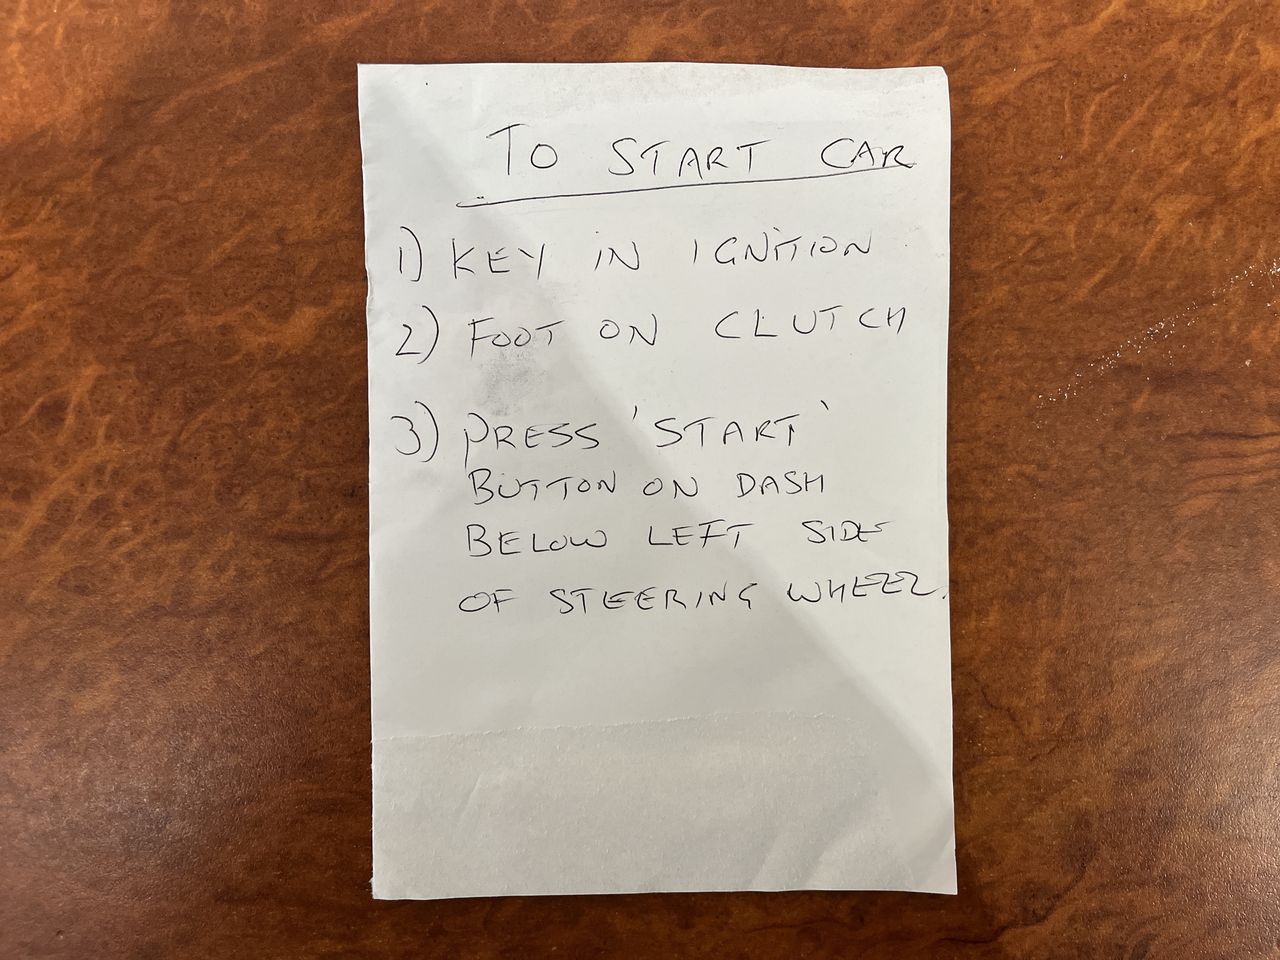 TO START CAR
1) KEY IN IGNITION
2) FOOT ON CLUTCH
3) PRESS 'START'
BUTTON ON DASH
BELOW LEFT SIDE
OF STEERING WHEEL.